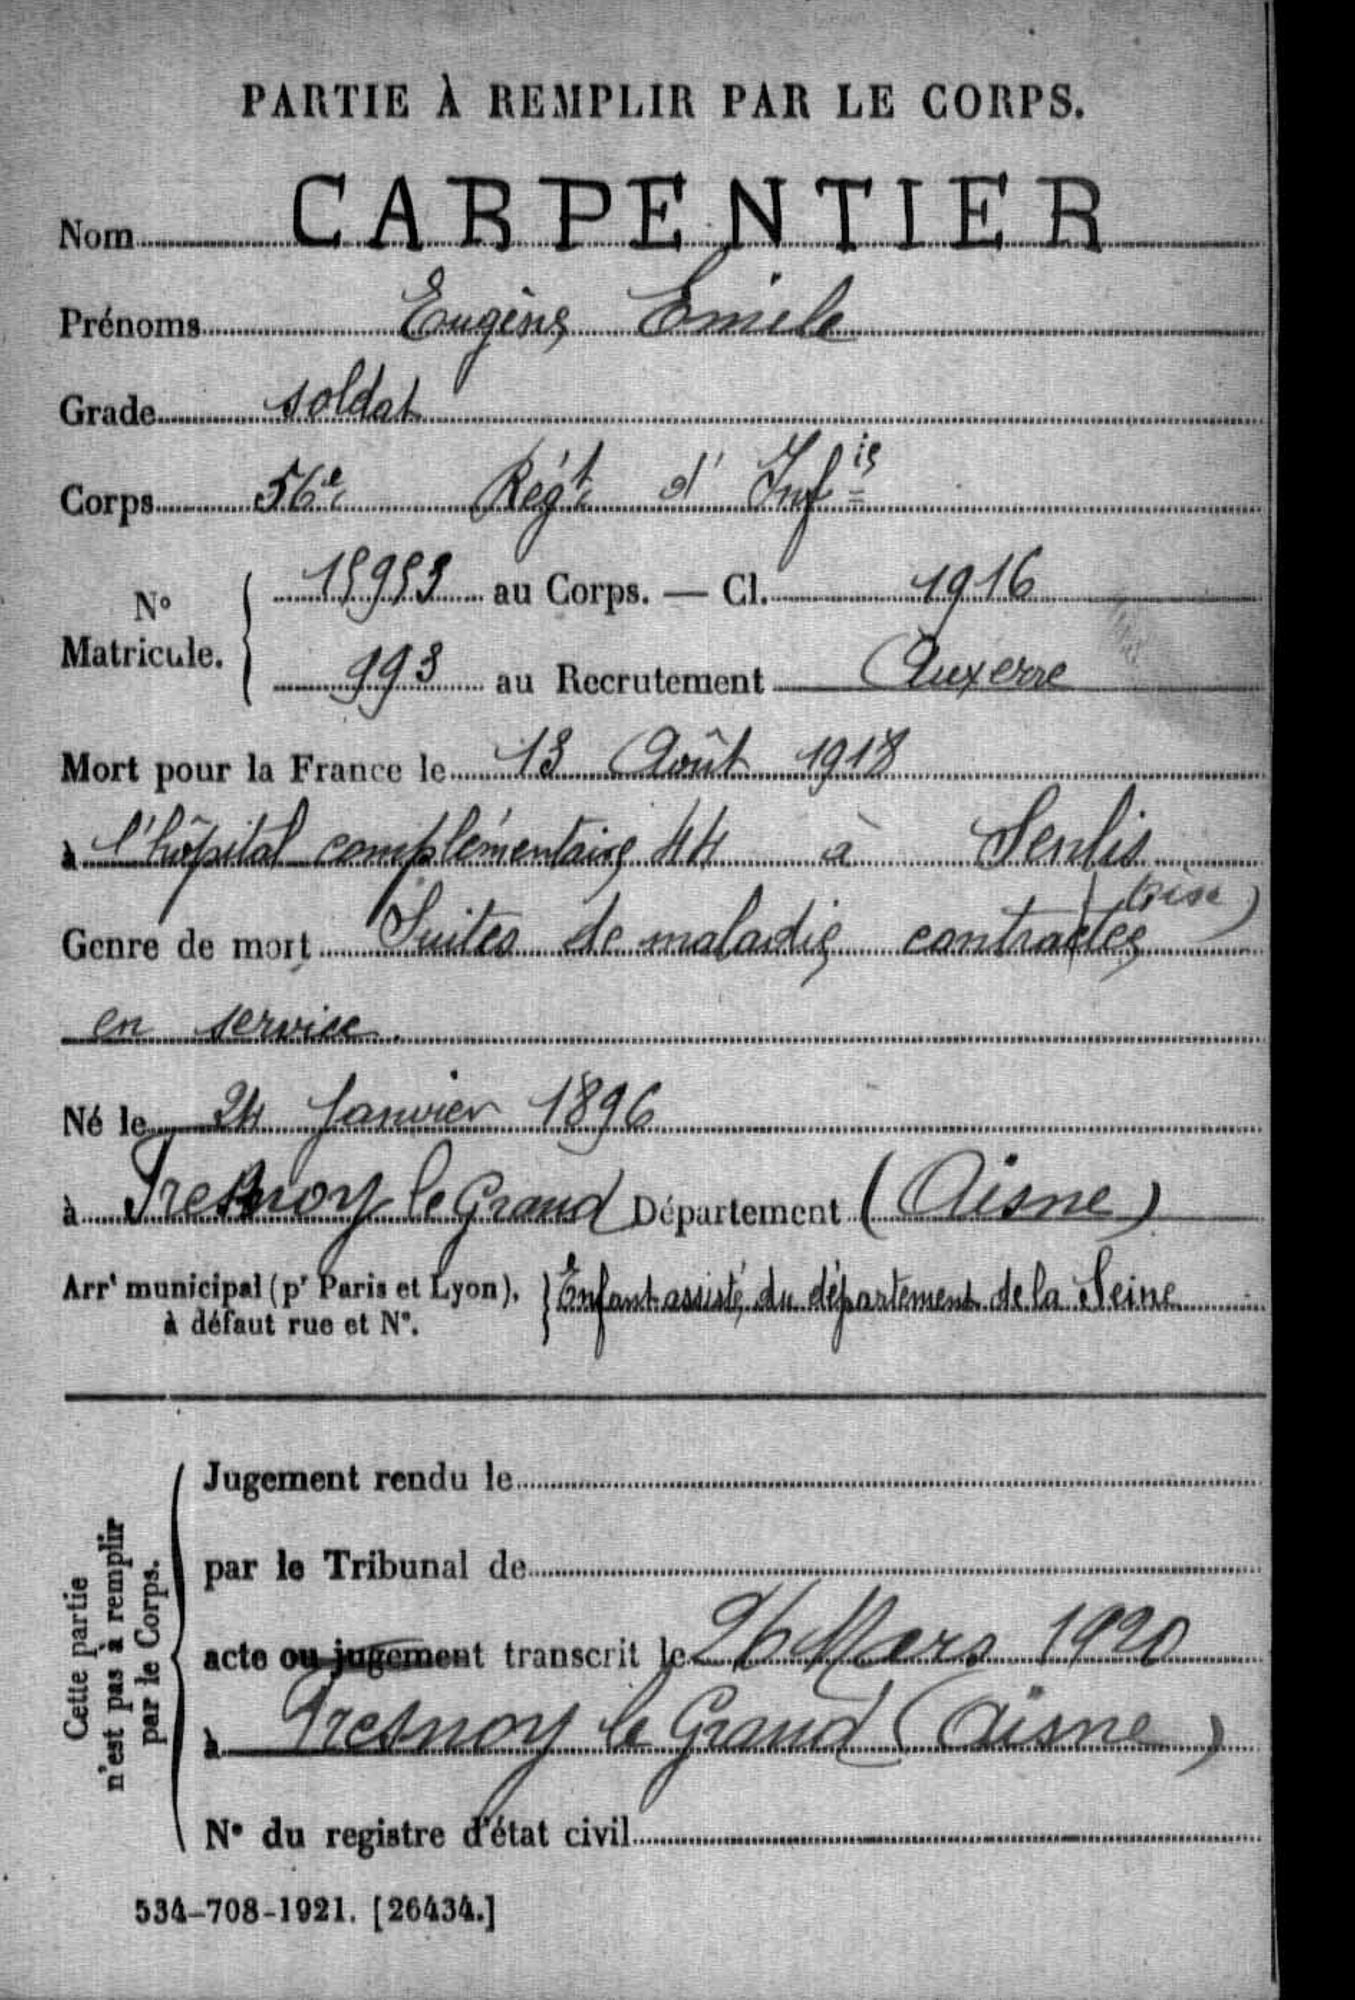 PARTIE À REMPLIR PAR LE CORPS.
Nom CARPENTIER
Prénoms Eugène Emile
Grade soldat
Corps 56e Régt d'Infie
N° Matricule. { 15953 au Corps. — Cl. 1916
993 au Recrutement Auxerre
Mort pour la France le 13 Août 1918
à l'hôpital complémentaire 44 à Senlis
(Oise)
Genre de mort Suites de maladie contractée
en service.
Né le 24 Janvier 1896
à Fresnoy le Grand Département (Aisne)
Arrt municipal (pr Paris et Lyon), } Enfant assisté du département de la Seine
à défaut rue et N°.
Cette partie
n'est pas à remplir
par le Corps.
Jugement rendu le
par le Tribunal de
acte ou jugement transcrit le 26 Mars 1920
à Fresnoy le Grand (Aisne)
N° du registre d'état civil
534-708-1921. [26434.]